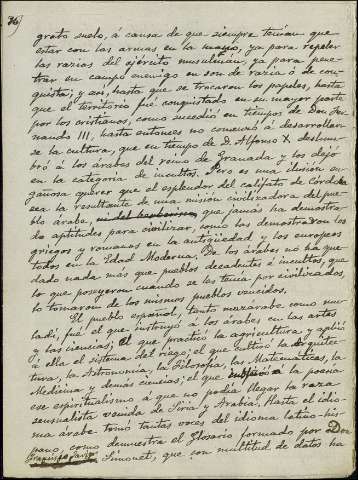 36
grato suelo, á causa de que siempre tenían que
estar con las armas en la mano, ya para repeler
las razias del ejército musulmán, ya para pene-
trar en campo enemigo en son de razia ó de con-
quista; y así, hasta que se trocaron los papeles, hasta
que el territorio fué conquistado en su mayor parte
por los cristianos, como sucedió en tiempos de Don Fer-
nando III, hasta entonces no comenzó á desarrollar-
se la cultura, que en tiempo de D. Alfonso X deslum-
bró á los árabes del reino de Granada y los dejó
en la categoría de incultos. Pero es una ilusion en-
gañosa querer que el esplendor del califato de Córdoba
sea la resultante de una mision civilizadora del pue-
blo árabe, que jamás ha demostra-
do aptitudes para civilizar, como las demostraron los
griegos y romanos en la antigüedad y los europeos
todos en la Edad Moderna. De los árabes no ha que-
dado nada más que pueblos decadentes é incultos, que
lo que poseyeron cuando se les tenía por civilizados,
lo tomaron de los mismos pueblos vencidos.
El pueblo español, tanto mozárabe como mu-
ladí, fué el que instruyó á los árabes, en las artes
y las ciencias; el que practicó la agricultura y aplicó
á ella el sistema del riego; el que cultivó la arquitec-
tura, la Astronomía, la Filosofía, las Matemáticas, la
Medicina y demás ciencias; el que á la poesía
ese espiritualismo á que no podía llegar la raza
sensualista venida de Siria y Arabia. Hasta el idio-
ma árabe tomó tantas voces del idioma latino-his-
pano, como demuestra el Glosario formado por Don
Francisco Javier Simonet, que con multitud de datos ha